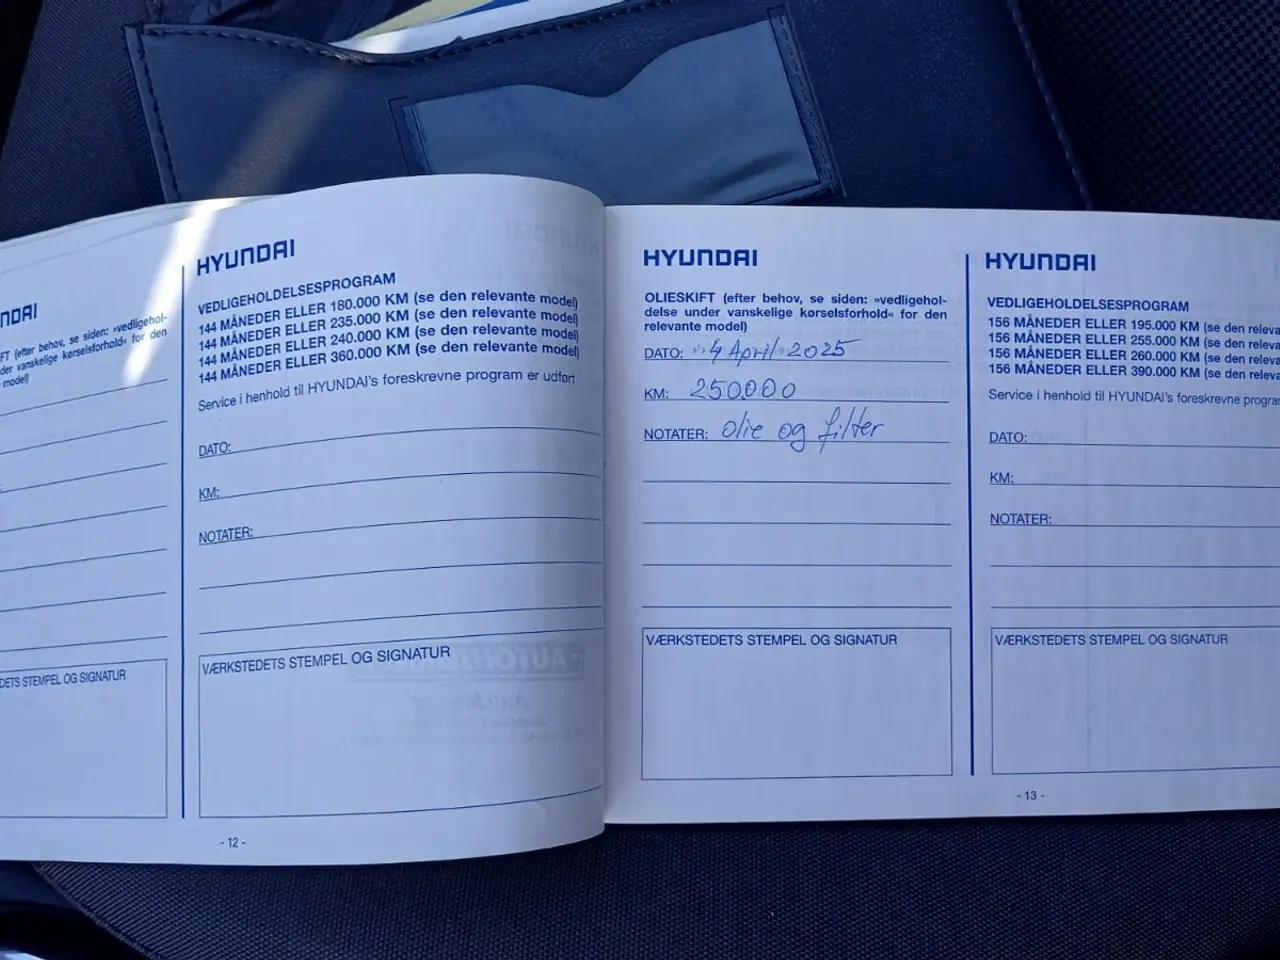 NDAI
FT (efter behov, se siden: »vedligehol-
der vanskelige kørselsforhold« for den
model)
DETS STEMPEL OG SIGNATUR
HYUNDAI
VEDLIGEHOLDELSESPROGRAM
144 MÅNEDER ELLER 180.000 KM (se den relevante model)
144 MÅNEDER ELLER 235.000 KM (se den relevante model)
144 MÅNEDER ELLER 240.000 KM (se den relevante model)
144 MÅNEDER ELLER 360.000 KM (se den relevante model)
Service i henhold til HYUNDAI's foreskrevne program er udført
DATO:
KM:
NOTATER:
VÆRKSTEDETS STEMPEL OG SIGNATUR
- 12 -
HYUNDAI
OLIESKIFT (efter behov, se siden: »vedligehol-
delse under vanskelige kørselsforhold« for den
relevante model)
DATO: 4 April 2025
KM: 250.000
NOTATER: olie og filter
VÆRKSTEDETS STEMPEL OG SIGNATUR
HYUNDAI
VEDLIGEHOLDELSESPROGRAM
156 MÅNEDER ELLER 195.000 KM (se den releva
156 MÅNEDER ELLER 255.000 KM (se den releva
156 MÅNEDER ELLER 260.000 KM (se den releva
156 MÅNEDER ELLER 390.000 KM (se den releva
Service i henhold til HYUNDAI's foreskrevne program
DATO:
KM:
NOTATER:
VÆRKSTEDETS STEMPEL OG SIGNATUR
- 13 -